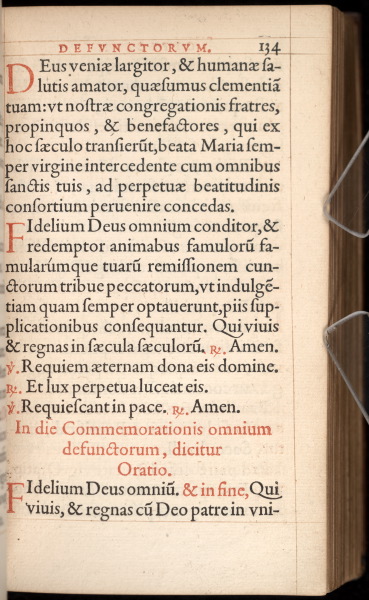 DEFVNCTORVM. 134
DEus veniæ largitor, & humanæ sa-
lutis amator, quæsumus clementiã
tuam: vt nostræ congregationis fratres,
propinquos, & benefactores, qui ex
hoc sæculo transierũt, beata Maria sem-
per virgine intercedente cum omnibus
sanctis tuis, ad perpetuæ beatitudinis
consortium peruenire concedas.
FIdelium Deus omnium conditor, &
redemptor animabus famulorũ fa-
mularúmque tuarũ remissionem cun-
ctorum tribue peccatorum, vt indulgẽ-
tiam quam semper optauerunt, piis sup-
plicationibus consequantur. Qui viuis
& regnas in sæcula sæculorũ. ℟. Amen.
℣. Requiem æternam dona eis domine.
℟. Et lux perpetua luceat eis.
℣. Requiescant in pace. ℟. Amen.
In die Commemorationis omnium
defunctorum, dicitur
Oratio.
FIdelium Deus omniũ. & in fine, Qui
viuis, & regnas cũ Deo patre in vni-